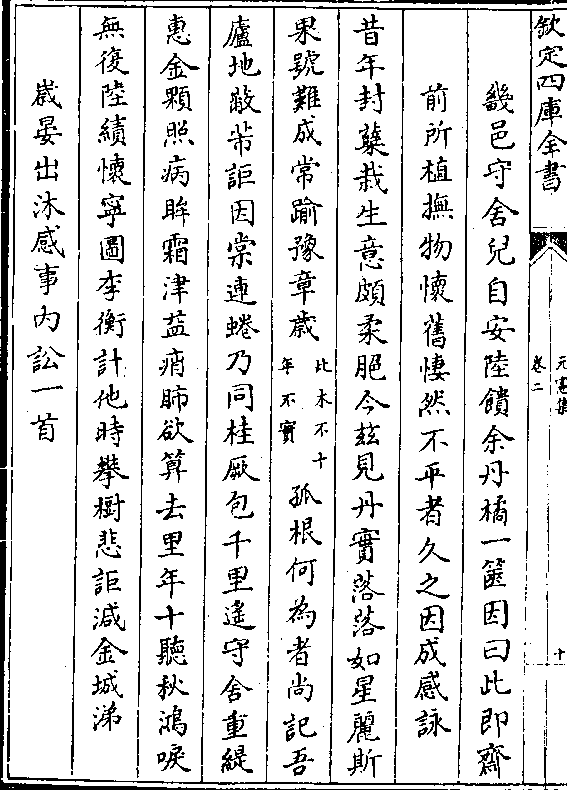 欽定四庫全書
元憲集
卷二
十
畿邑守舍兒自安陸饋余丹橘一篋因曰此即齋
前所植撫物懷舊悽然不平者久之因成感詠
昔年封蘂栽生意頗柔脆今兹見丹實落落如星麗斯
果號難成常踰豫章歲此木不十年不實孤根何為者尚記吾
廬地敢芾詎因棠連蜷乃同桂厥包千里遙守舍重緹
惠金顆照病眸霜津益痟肺欲算去里年十聽秋鴻唳
無復陸績懷寧圖李衡計他時攀樹悲詎減金城涕
歲晏出沐感事内訟一首